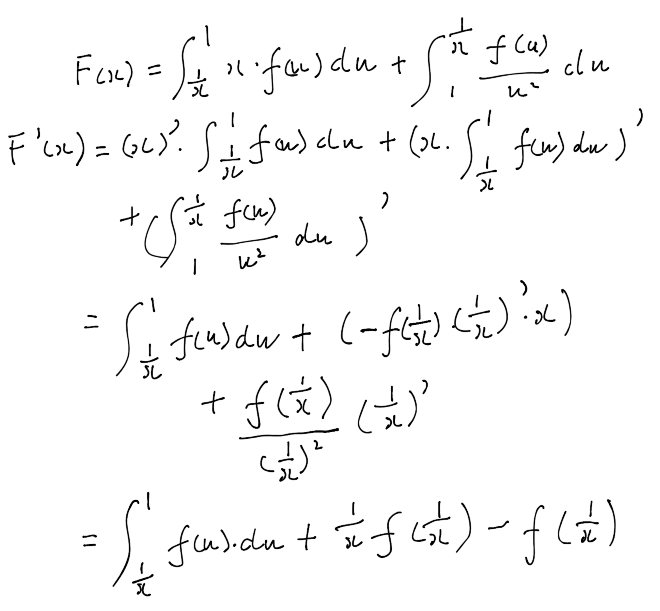 F(x) = ∫_{1/x}^{1} x·f(u) du + ∫_{1}^{1/x} f(u)/u² du
F'(x) = (x)'·∫_{1/x}^{1} f(u) du + (x·∫_{1/x}^{1} f(u) du)'
+ (∫_{1}^{1/x} f(u)/u² du)'
= ∫_{1/x}^{1} f(u) du + (-f(1/x) (1/x)'·x)
+ f(1/x)/(1/x)² (1/x)'
= ∫_{1/x}^{1} f(u)·du + 1/x f(1/x) - f(1/x)